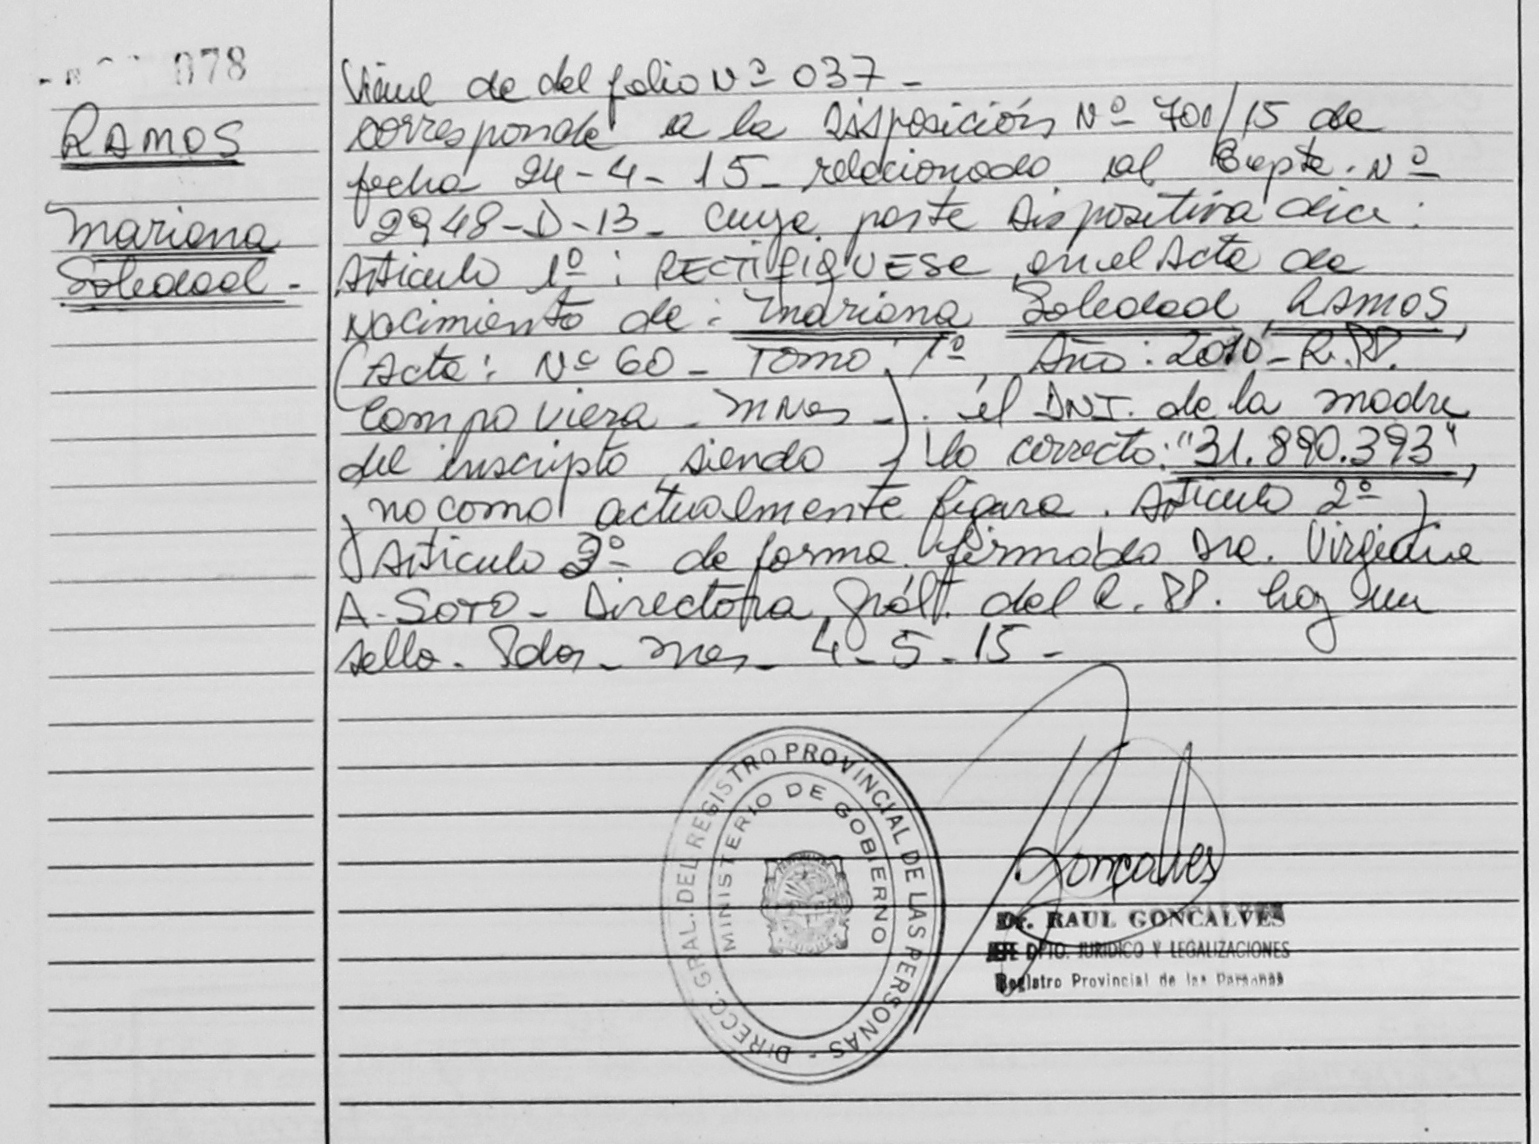 078
RAMOS
Mariana
Soledad -
Viene de del folio Nº 037 -
corresponde a la Disposición Nº 700/15 de
fecha 24-4-15 - relacionado al Expte. Nº
2948-D-13 - cuya parte dispositiva dice:
Articulo 1º: RECTIFIQUESE en el Acta de
nacimiento de: Mariana Soledad RAMOS,
(Acta: Nº 60 - Tomo 1º, Año: 2010 - R.P.
Campo Viera - Mnes -). el DNI. de la madre
del inscripto, siendo lo correcto: "31.890.393",
no como actualmente figura. Articulo 2º)
Articulo 3º de forma. firmados Dra. Virginia
A. SOTO - Directora Grál. del R.P. hay un
sello - Pdas - Mnes - 4-5-15 -
DIRECC. GRAL. DEL REGISTRO PROVINCIAL DE LAS PERSONAS -
MINISTERIO DE GOBIERNO
Gonçalves
Dr. RAUL GONCALVES
JEFE DPTO. JURIDICO Y LEGALIZACIONES
Registro Provincial de las Personas